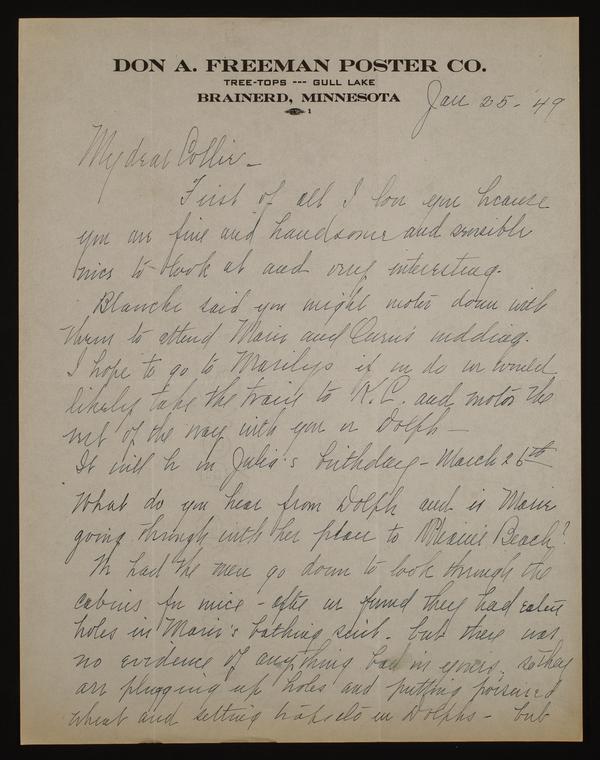 DON A. FREEMAN POSTER CO.
TREE-TOPS --- GULL LAKE
BRAINERD, MINNESOTA
Jan 25 - '49
My dear Collie -
First of all I love you because
you are fine and handsome and sensible
nice to look at and very interesting.
Blanche said you might motor down with
them to attend Marie and wedding.
I hope to go to Marilys if we do we would
likely take the train to K.C. and motor the
rest of the way with you or Dolph -
It will be on Julia's birthday - March 26th
What do you hear from Dolph and is Marie
going through with her plan to Miami Beach?
We had the men go down to look through the
cabins for mice - after we found they had eaten
holes in Marie's bathing suit - but there was
no evidence of anything bad in yours, so they
are plugging up holes and putting poisoned
wheat and setting traps in Dolphs - but